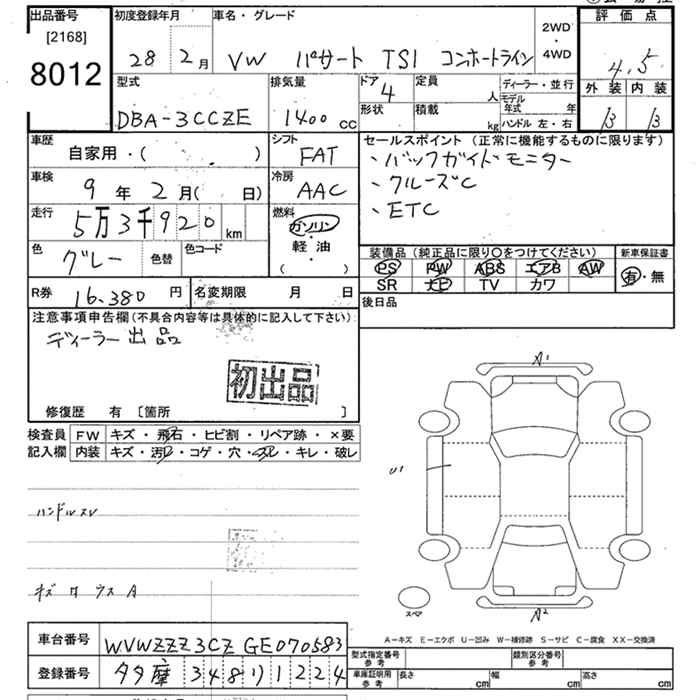 出品番号
[2168]
8012
初度登録年月
28 2月
車名・グレード
VW パサート TSI コンホートライン
2WD
・
4WD
評価点
4.5
外装 内装
B B
型式
DBA-3CCZE
排気量
1400 cc
ドア
4
形状
定員
人
積載
kg
ディーラー・並行
モデル年式 年
ハンドル 左・右
車歴
自家用・( )
シフト
FAT
車検
9年 2月( 日)
冷房
AAC
走行
5万3千920 km
燃料
ガソリン
軽・油
( )
色
グレー
色替
色コード
セールスポイント (正常に機能するものに限ります)
、バックガイドモニター
、クルーズC
、ETC
装備品 (純正品に限り○をつけてください)
PS PW ABS エアB AW
SR ナビ TV カワ
新車保証書
有・無
R券
16.380 円
名変期限 月 日
後日品
注意事項申告欄(不具合内容等は具体的に記入して下さい)
ディーラー出品
初出品
修復歴 有 [箇所 ]
検査員
記入欄
FW キズ・飛石・ヒビ割・リペア跡・×要
内装 キズ・汚レ・コゲ・穴・スレ・キレ・破レ
ハンドルスレ
A1
U1
スペア
A2
A-キズ E-エクボ U-凹み W-補修跡 S-サビ C-腐食 XX-交換済
車台番号
WVWZZZ3CZ GE070583
登録番号
型式指定番号
参考
類別区分番号
参考
車庫証明用
参考
長さ cm
幅 cm
高さ cm